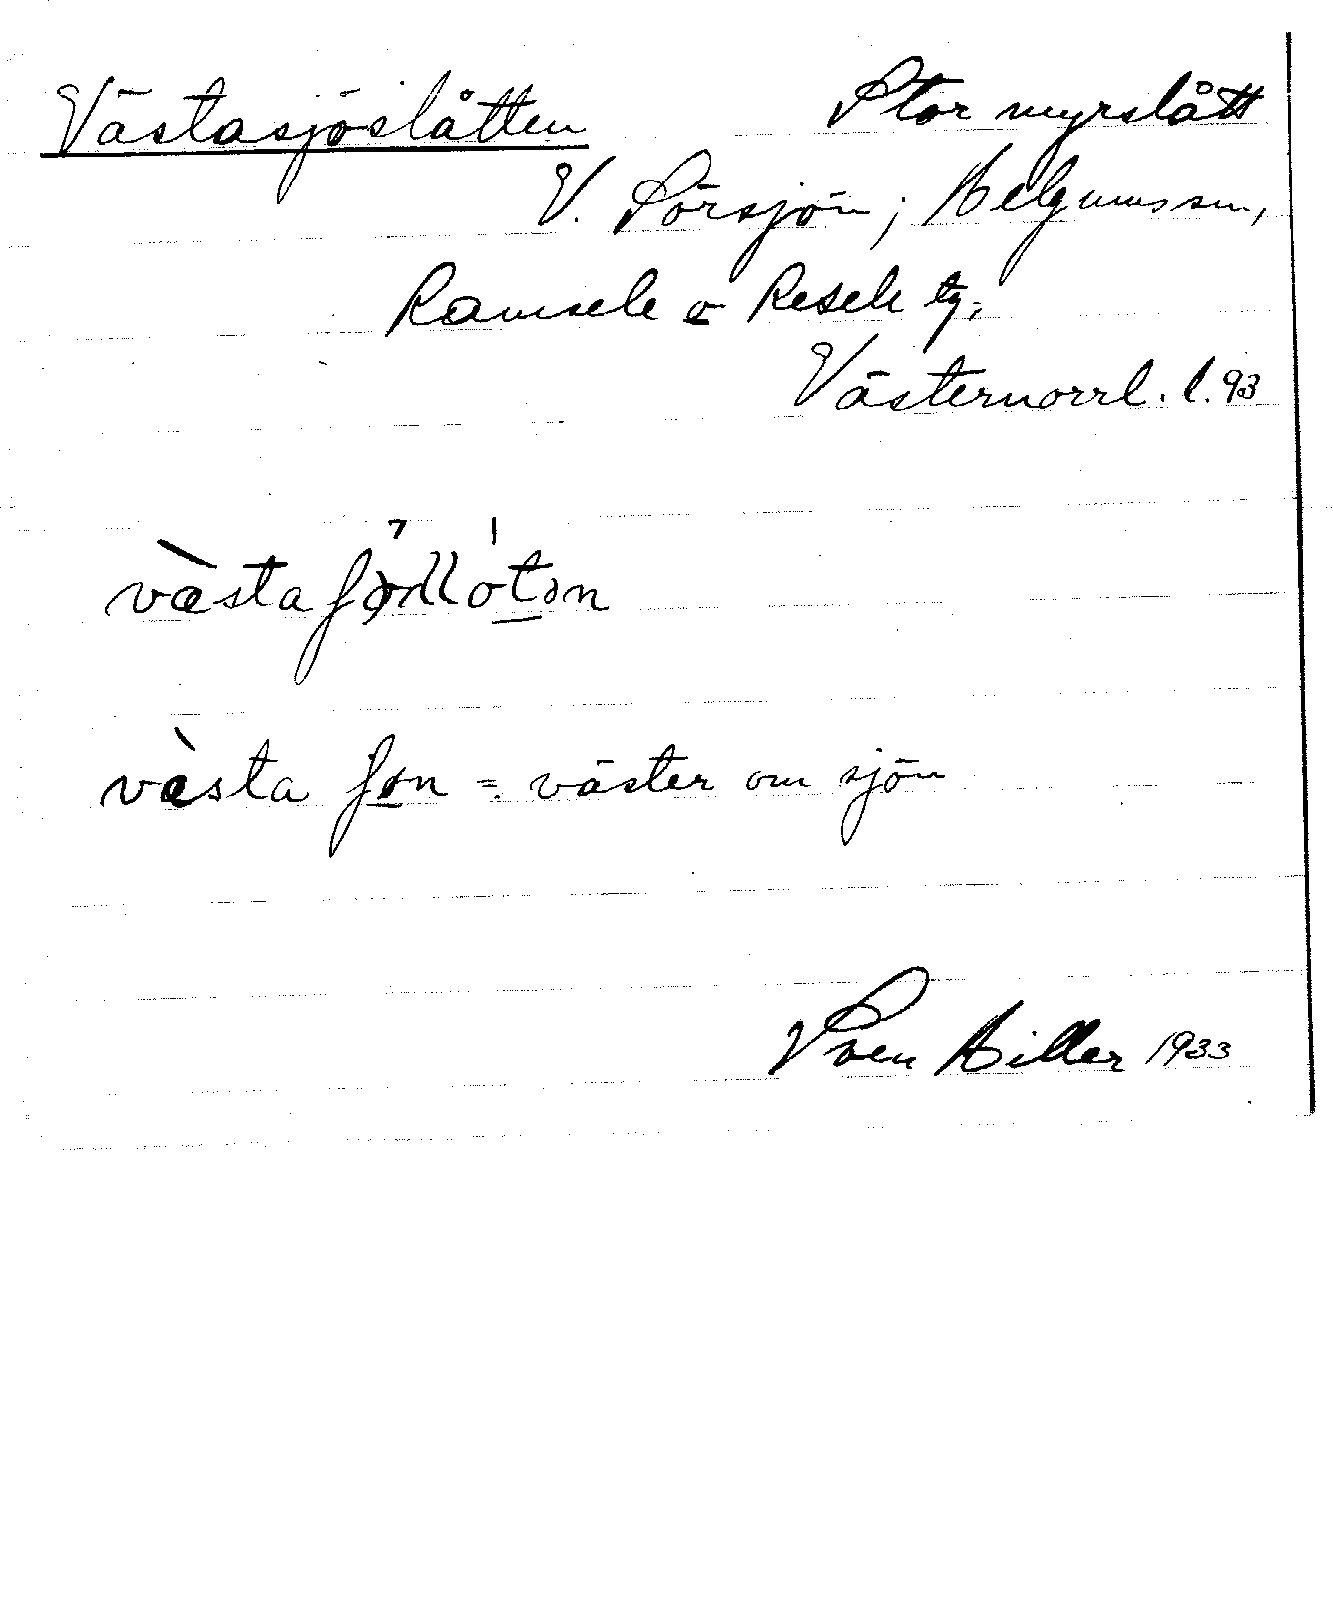 Västasjöslåtten Stor myrslått
V. Sörsjön; Helgumssn,
Ramsele o Resele tg.
Västernorrl. l. 93
västa
västa = väster om sjön
Sven Hiller 1933